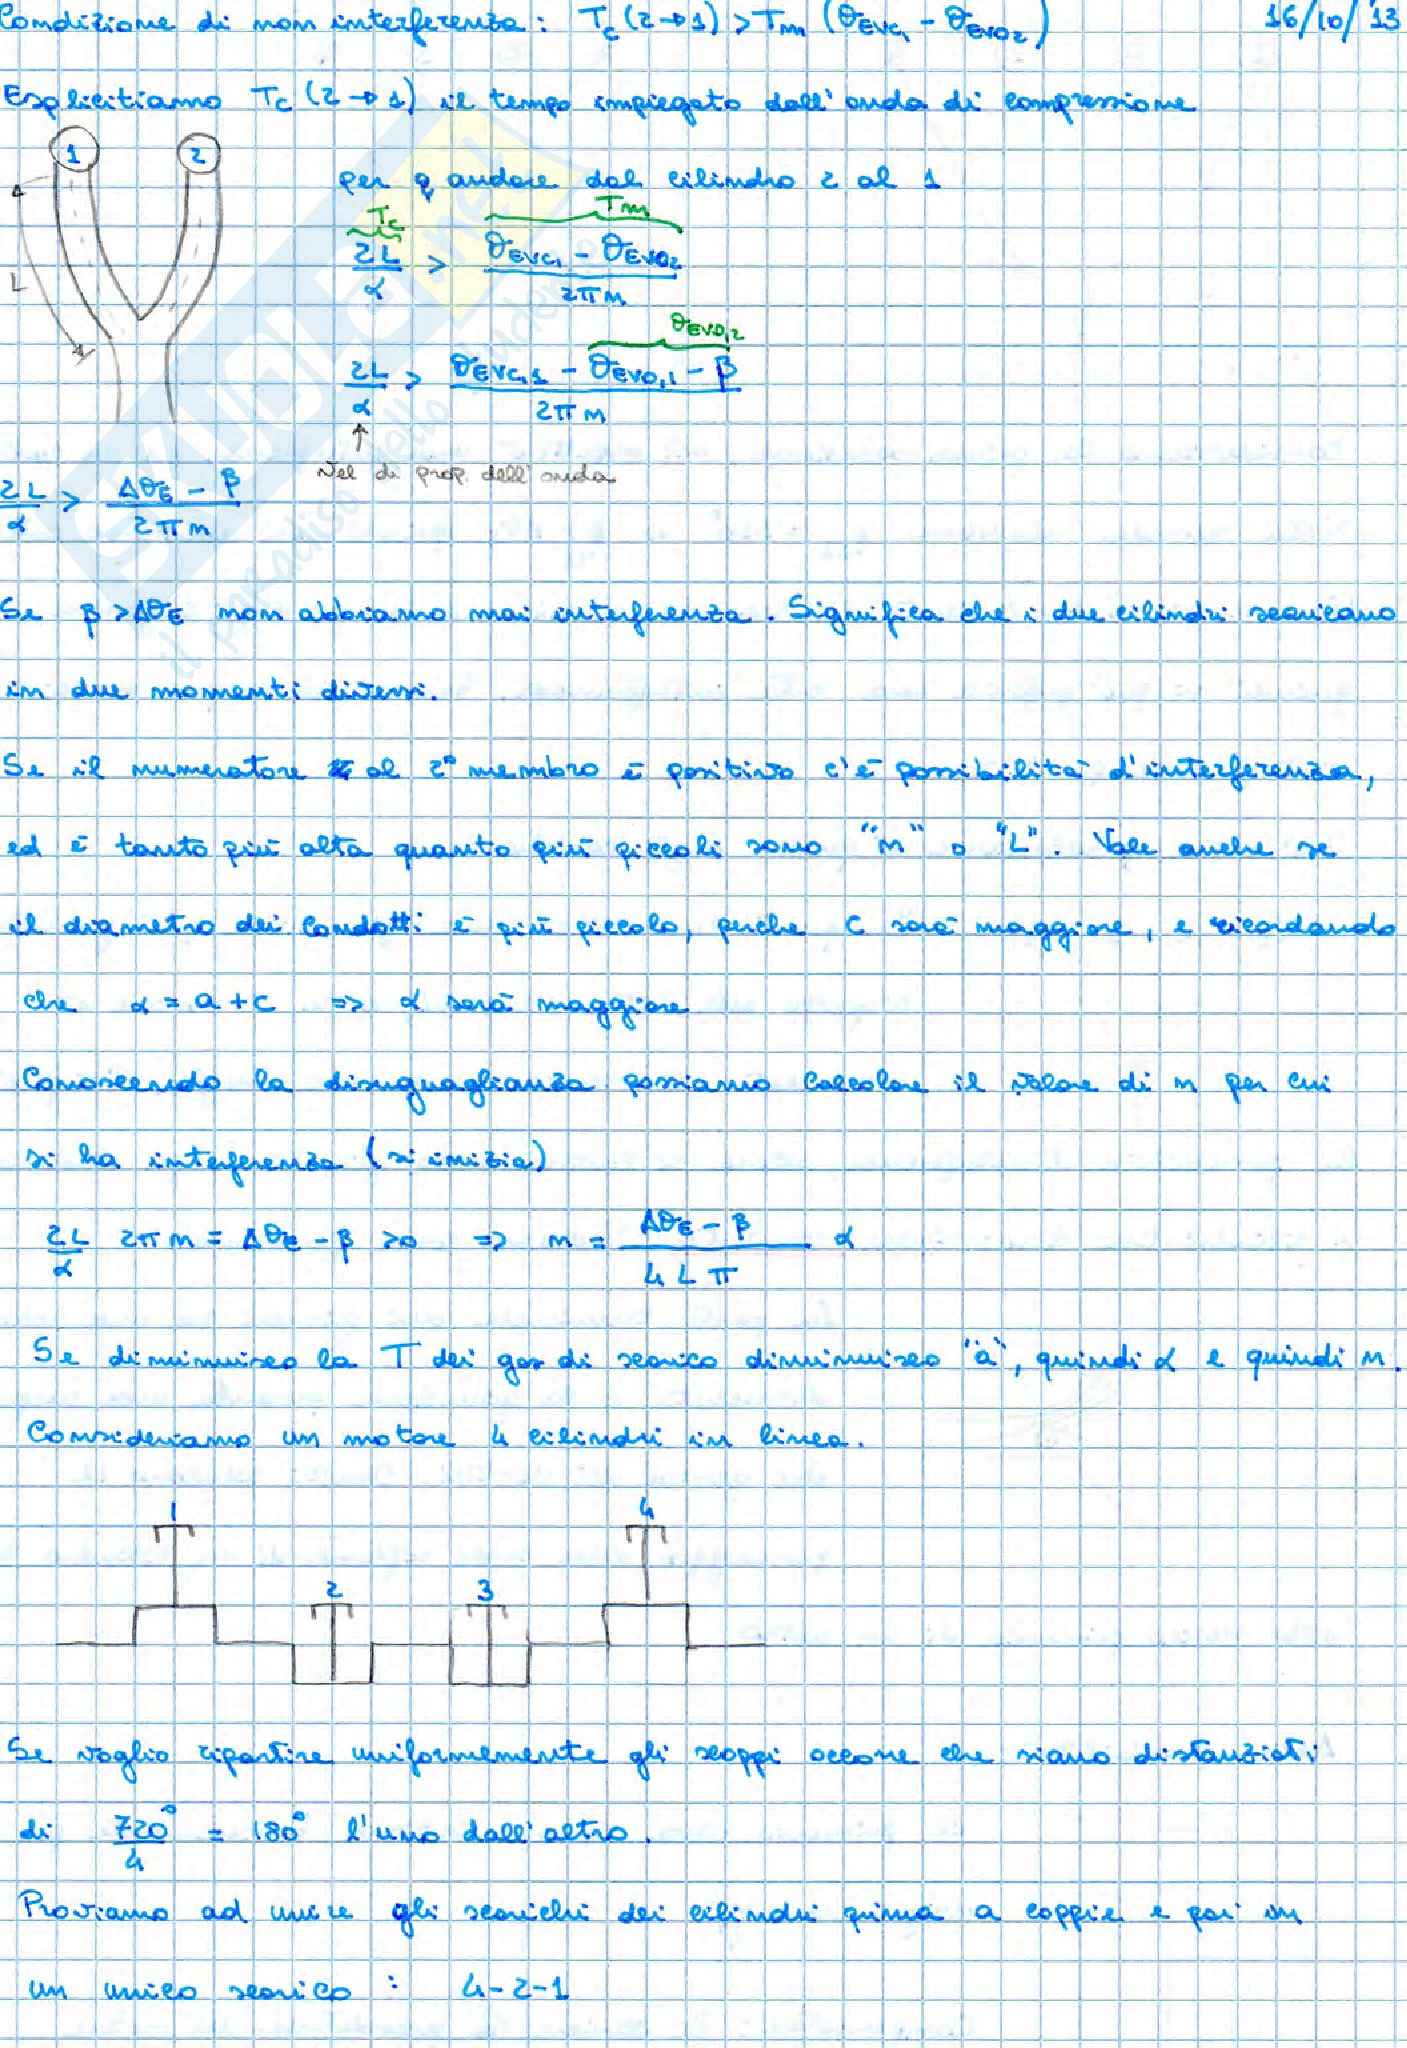 Condizione di non interferenza: Tc (2→1) > Tm (θEVC1 - θEVO2) 16/10/'13
Esplicitiamo Tc (2→1) il tempo impiegato dall'onda di compressione
1 2
per andare dal cilindro 2 al 1
L
Tc Tm
2L/α > (θEVC1 - θEVO2)/(2πn)
θEVO,2
2L/α > (θEVC,1 - θEVO,1 - β)/(2πn)
↑
Vel di prop. dell'onda
2L/α > (ΔθE - β)/(2πn)
Se β > ΔθE non abbiamo mai interferenza. Significa che i due cilindri scaricano
in due momenti diversi.
Se il numeratore al 2° membro è positivo c'è possibilità d'interferenza,
ed è tanto più alta quanto più piccoli sono "n" o "L". Vale anche se
il diametro dei condotti è più piccolo, perche C sarà maggiore, e ricordando
che α = a + c => α sarà maggiore
Conoscendo la disuguaglianza possiamo calcolare il valore di n per cui
si ha interferenza (si inizia)
2L/α 2πn = ΔθE - β >0 => n = (ΔθE - β)/(4 L π) α
Se diminuisco la T dei gas di scarico diminuisco "a", quindi α e quindi n.
Consideriamo un motore 4 cilindri in linea.
1 4
2 3
Se voglio ripartire uniformemente gli scoppi occorre che siano distanziati
di 720°/4 = 180° l'uno dall'altro.
Proviamo ad unire gli scarichi dei cilindri prima a coppie e poi in
un unico scarico : 4-2-1
SKUOLA.net
il paradiso dello studente